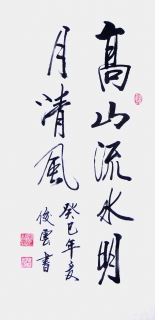 高山流水明
月清風
癸巳年夏
俊雲書